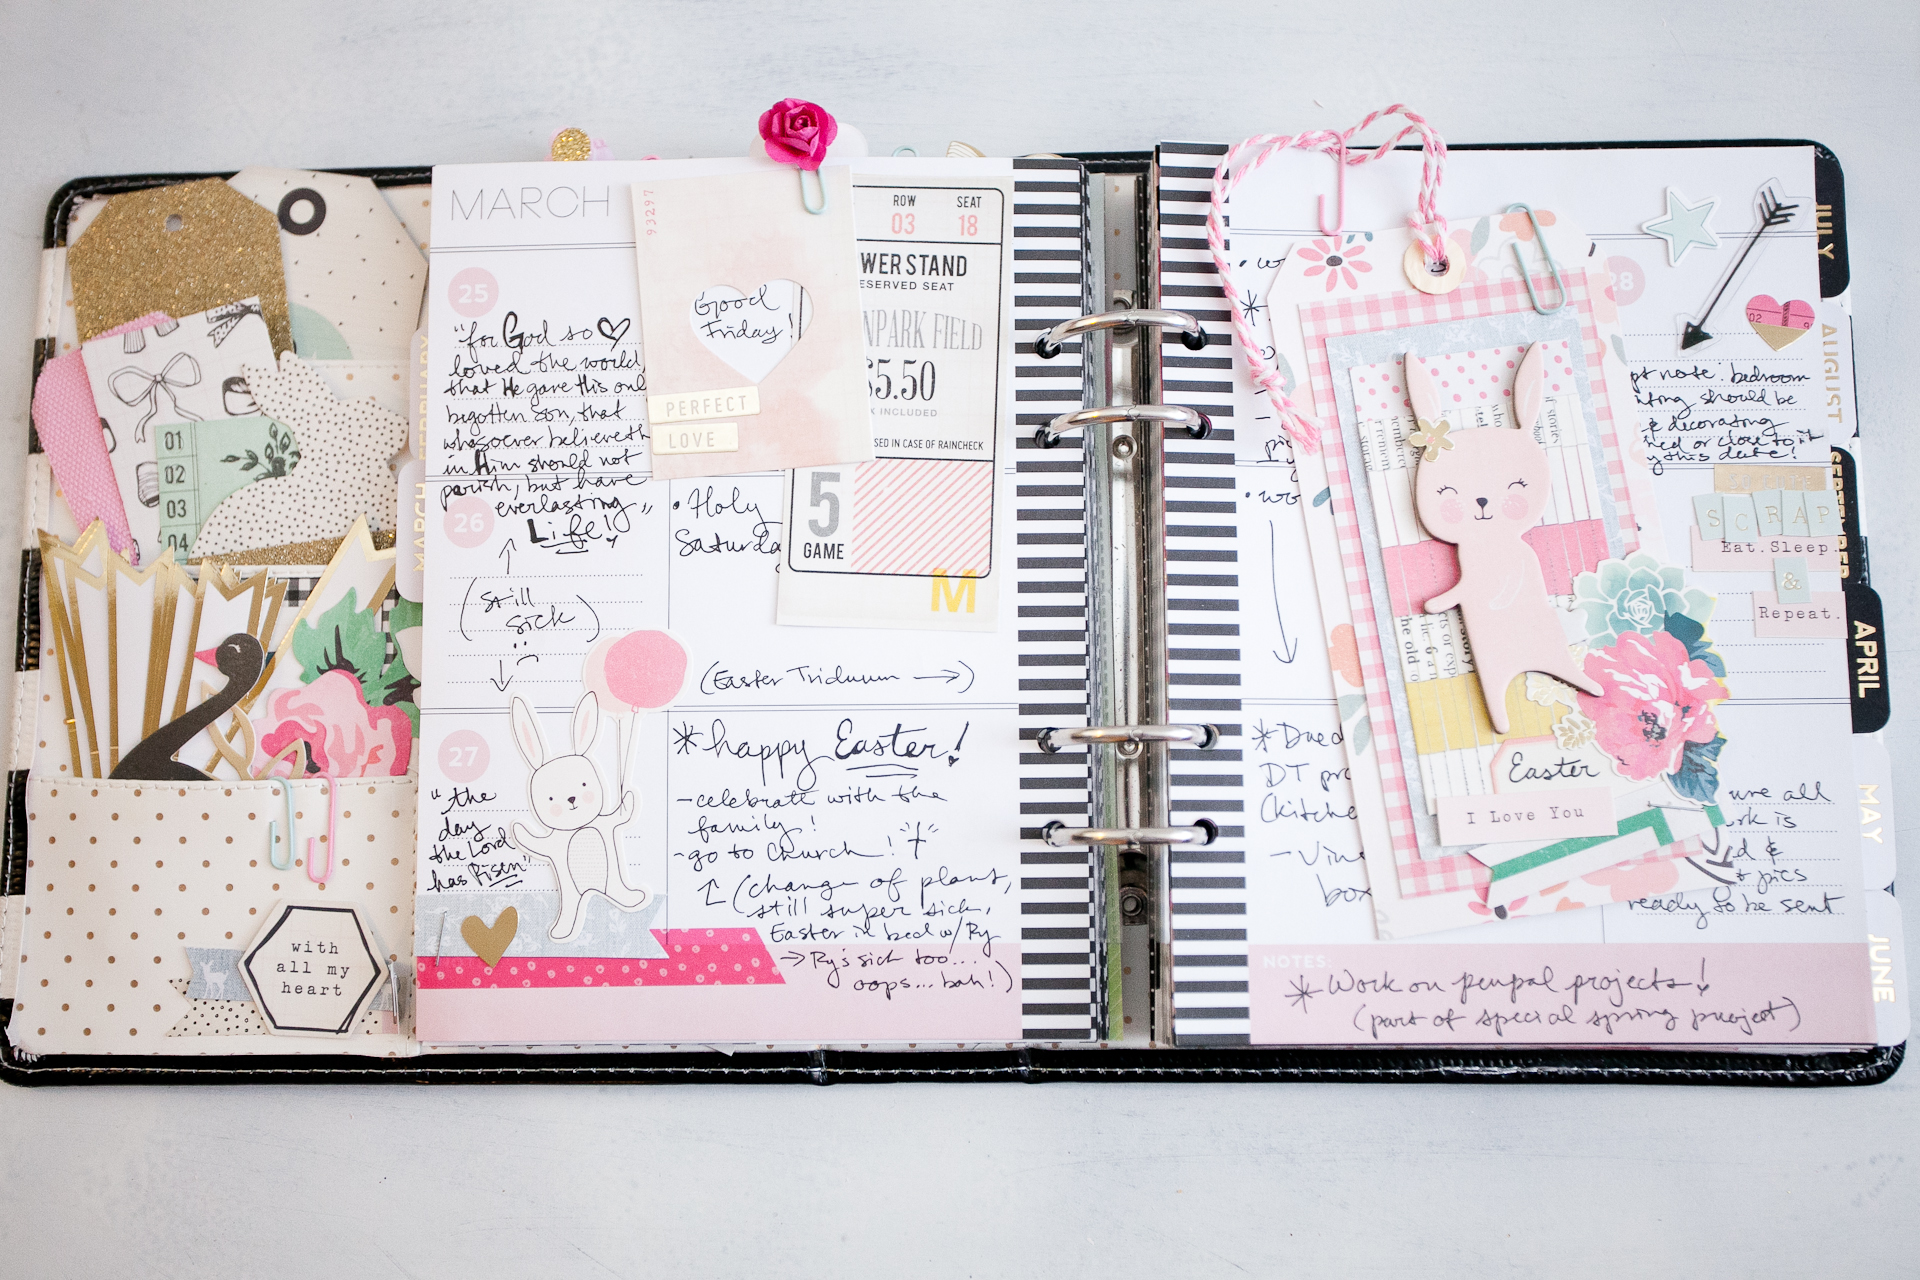 01
02
03
04
with
all my
heart
FEBRUARY
MARCH
MARCH
25
"for God so
loved the world,
that He gave His only
begotten Son, that
whosoever believeth
in Him should not
perish, but have
everlasting
Life!"
26
(still
sick)
27
"the
day
the Lord
has Risen"
93297
Good
Friday!
PERFECT
LOVE
ROW
SEAT
03
18
WER STAND
ESERVED SEAT
NPARK FIELD
$5.50
X INCLUDED
SED IN CASE OF RAINCHECK
5
GAME
M
• Holy
Saturday
(Easter Triduum →)
* happy Easter!
- celebrate with the
family!
- go to Church!
(change of plans,
still super sick,
Easter in bed w/ Ry
→ Ry's sick too...
oops... bah!)
28
pt note. bedroom
should be
& decorating
or close to it
y this date!
SCRAP
Eat.Sleep.
&
Repeat.
* Dued
DT pro
(kitche
- Vin
box
Easter
I Love You
ure all
rk is
d &
pics
ready to be sent
NOTES:
* Work on penpal projects!
(part of special spring project)
JULY
AUGUST
SEPTEMBER
APRIL
MAY
JUNE